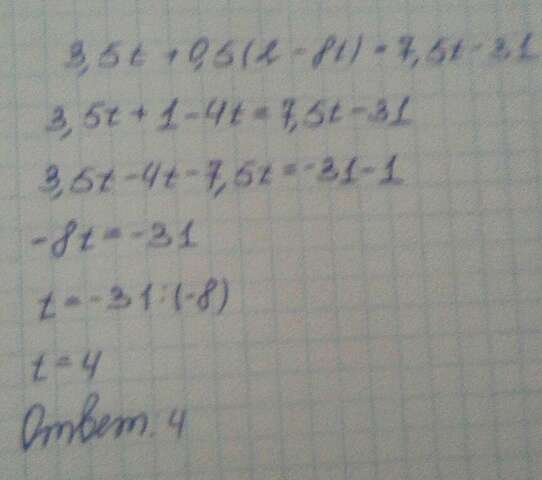 3,5t + 0,5(2 - 8t) = 7,5t - 31
3,5t + 1 - 4t = 7,5t - 31
3,5t - 4t - 7,5t = -31 - 1
-8t = -31
t = -31 : (-8)
t = 4
Ответ: 4